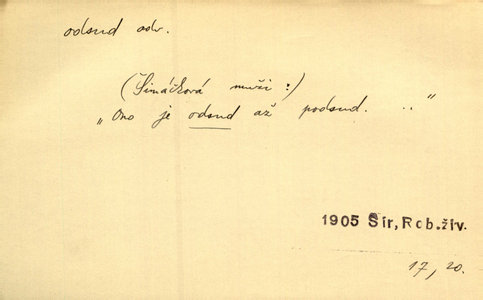 odsud adv.
(Šimáčková muži:)
„Ono je odsud až podsud. .."
1905 Šír, Rob.živ.
17, 20.